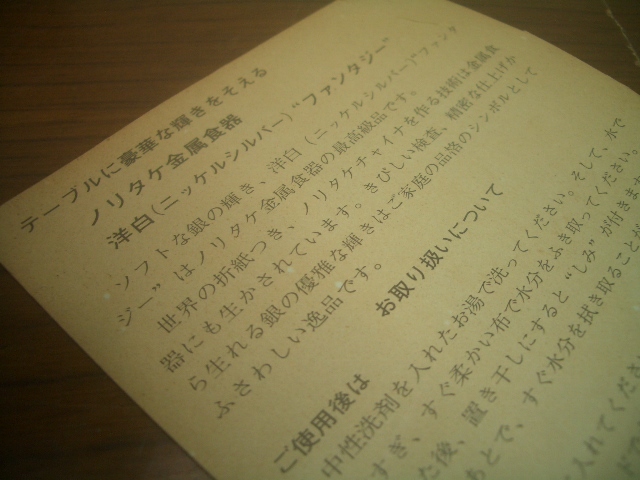 テーブルに豪華な輝きをそえる
ノリタケ金属食器
洋白(ニッケルシルバー)“ファンタジー”
ソフトな銀の輝き、洋白(ニッケルシルバー)“ファンタ
ジー”はノリタケ金属食器の最高級品です。
世界の折紙つき、ノリタケチャイナを作る技術は金属食
器にも生かされています。きびしい検査、精密な仕上げか
ら生れる銀の優雅な輝きはご家庭の品格のシンボルとして
ふさわしい逸品です。
お取り扱いについて
ご使用後は
中性洗剤を入れたお湯で洗ってください。そして、水で
すぎ、すぐ柔かい布で水分をふき取ってください。
た後、置き干しにすると“しみ”が付きます
あとで、すぐ水分を拭き取ることが
に入れてくださ